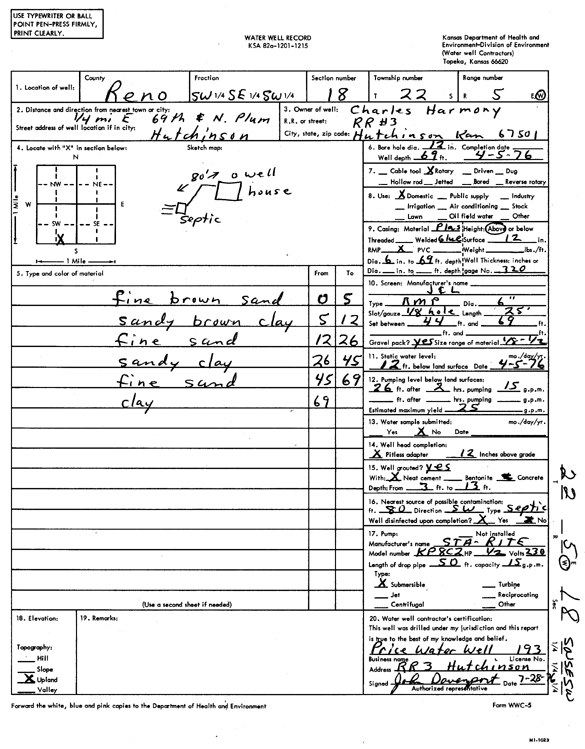 USE TYPEWRITER OR BALL
POINT PEN-PRESS FIRMLY,
PRINT CLEARLY.
WATER WELL RECORD
KSA 82a-1201-1215
Kansas Department of Health and
Environment-Division of Environment
(Water well Contractors)
Topeka, Kansas 66620
1. Location of well:
County
Reno
Fraction
SW 1/4 SE 1/4 SW 1/4
Section number
18
Township number
T 22 S
Range number
R 5 E(W)
2. Distance and direction from nearest town or city:
1/4 mi E 69th & N. Plum
Street address of well location if in city:
Hutchinson
3. Owner of well: Charles Harmony
R.R. or street: RR#3
City, state, zip code: Hutchinson Kan 67501
4. Locate with "X" in section below:
N
NW NE
W E
SW SE
X
S
1 Mile
1 Mile
Sketch map:
80' o well
house
septic
6. Bore hole dia. 12 in. Completion date
Well depth 69 ft. 4-5-76
7. Cable tool X Rotary Driven Dug
Hollow rod Jetted Bored Reverse rotary
8. Use: X Domestic Public supply Industry
Irrigation Air conditioning Stock
Lawn Oil field water Other
9. Casing: Material Plas Height: Above or below
Threaded Welded Glue Surface 12 in.
RMP X PVC Weight lbs./ft.
Dia. 6 in. to 69 ft. depth Wall Thickness: inches or
Dia. in. to ft. depth gage No. 320
5. Type and color of material From To
fine brown sand 0 5
sandy brown clay 5 12
fine sand 12 26
sandy clay 26 45
fine sand 45 69
clay 69
(Use a second sheet if needed)
10. Screen: Manufacturer's name
J&L
Type RMP Dia. 6"
Slot/gauze 1/8 hole Length 25'
Set between 44 ft. and 69 ft.
ft. and ft.
Gravel pack? yes Size range of material 1/8-1/2
11. Static water level: mo./day/yr.
12 ft. below land surface Date 4-5-76
12. Pumping level below land surfaces:
26 ft. after 2 hrs. pumping 15 g.p.m.
ft. after hrs. pumping g.p.m.
Estimated maximum yield 25 g.p.m.
13. Water sample submitted: mo./day/yr.
Yes X No Date
14. Well head completion:
X Pitless adapter 12 Inches above grade
15. Well grouted? yes
With: X Neat cement Bentonite Concrete
Depth: From 3 ft. to 13 ft.
16. Nearest source of possible contamination:
ft. 80 Direction SW Type Septic
Well disinfected upon completion? X Yes No
17. Pump: Not installed
Manufacturer's name STA-RITE
Model number KP8C2 HP 1/2 Volts 230
Length of drop pipe 50 ft. capacity 15 g.p.m.
Type:
X Submersible Turbine
Jet Reciprocating
Centrifugal Other
18. Elevation:
Topography:
Hill
Slope
X Upland
Valley
19. Remarks:
20. Water well contractor's certification:
This well was drilled under my jurisdiction and this report
is true to the best of my knowledge and belief.
Price Water Well 193
Business name License No.
Address RR3 Hutchinson
Signed John Davenport Date 7-28-76
Authorized representative
Forward the white, blue and pink copies to the Department of Health and Environment
Form WWC-5
T 22 R 5 E(W) Sec 18 SW SE SW
1/4 1/4 1/4